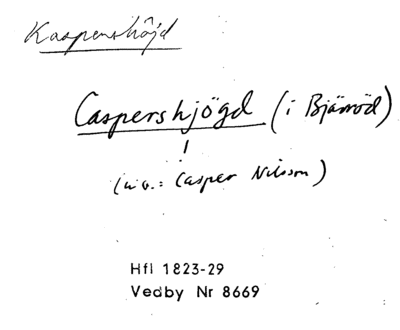 Kaspershöjd
Caspershjögd (i Bjärröd)
(u.o.: Casper Nilsson)
Hfl 1823-29
Vedby Nr 8669